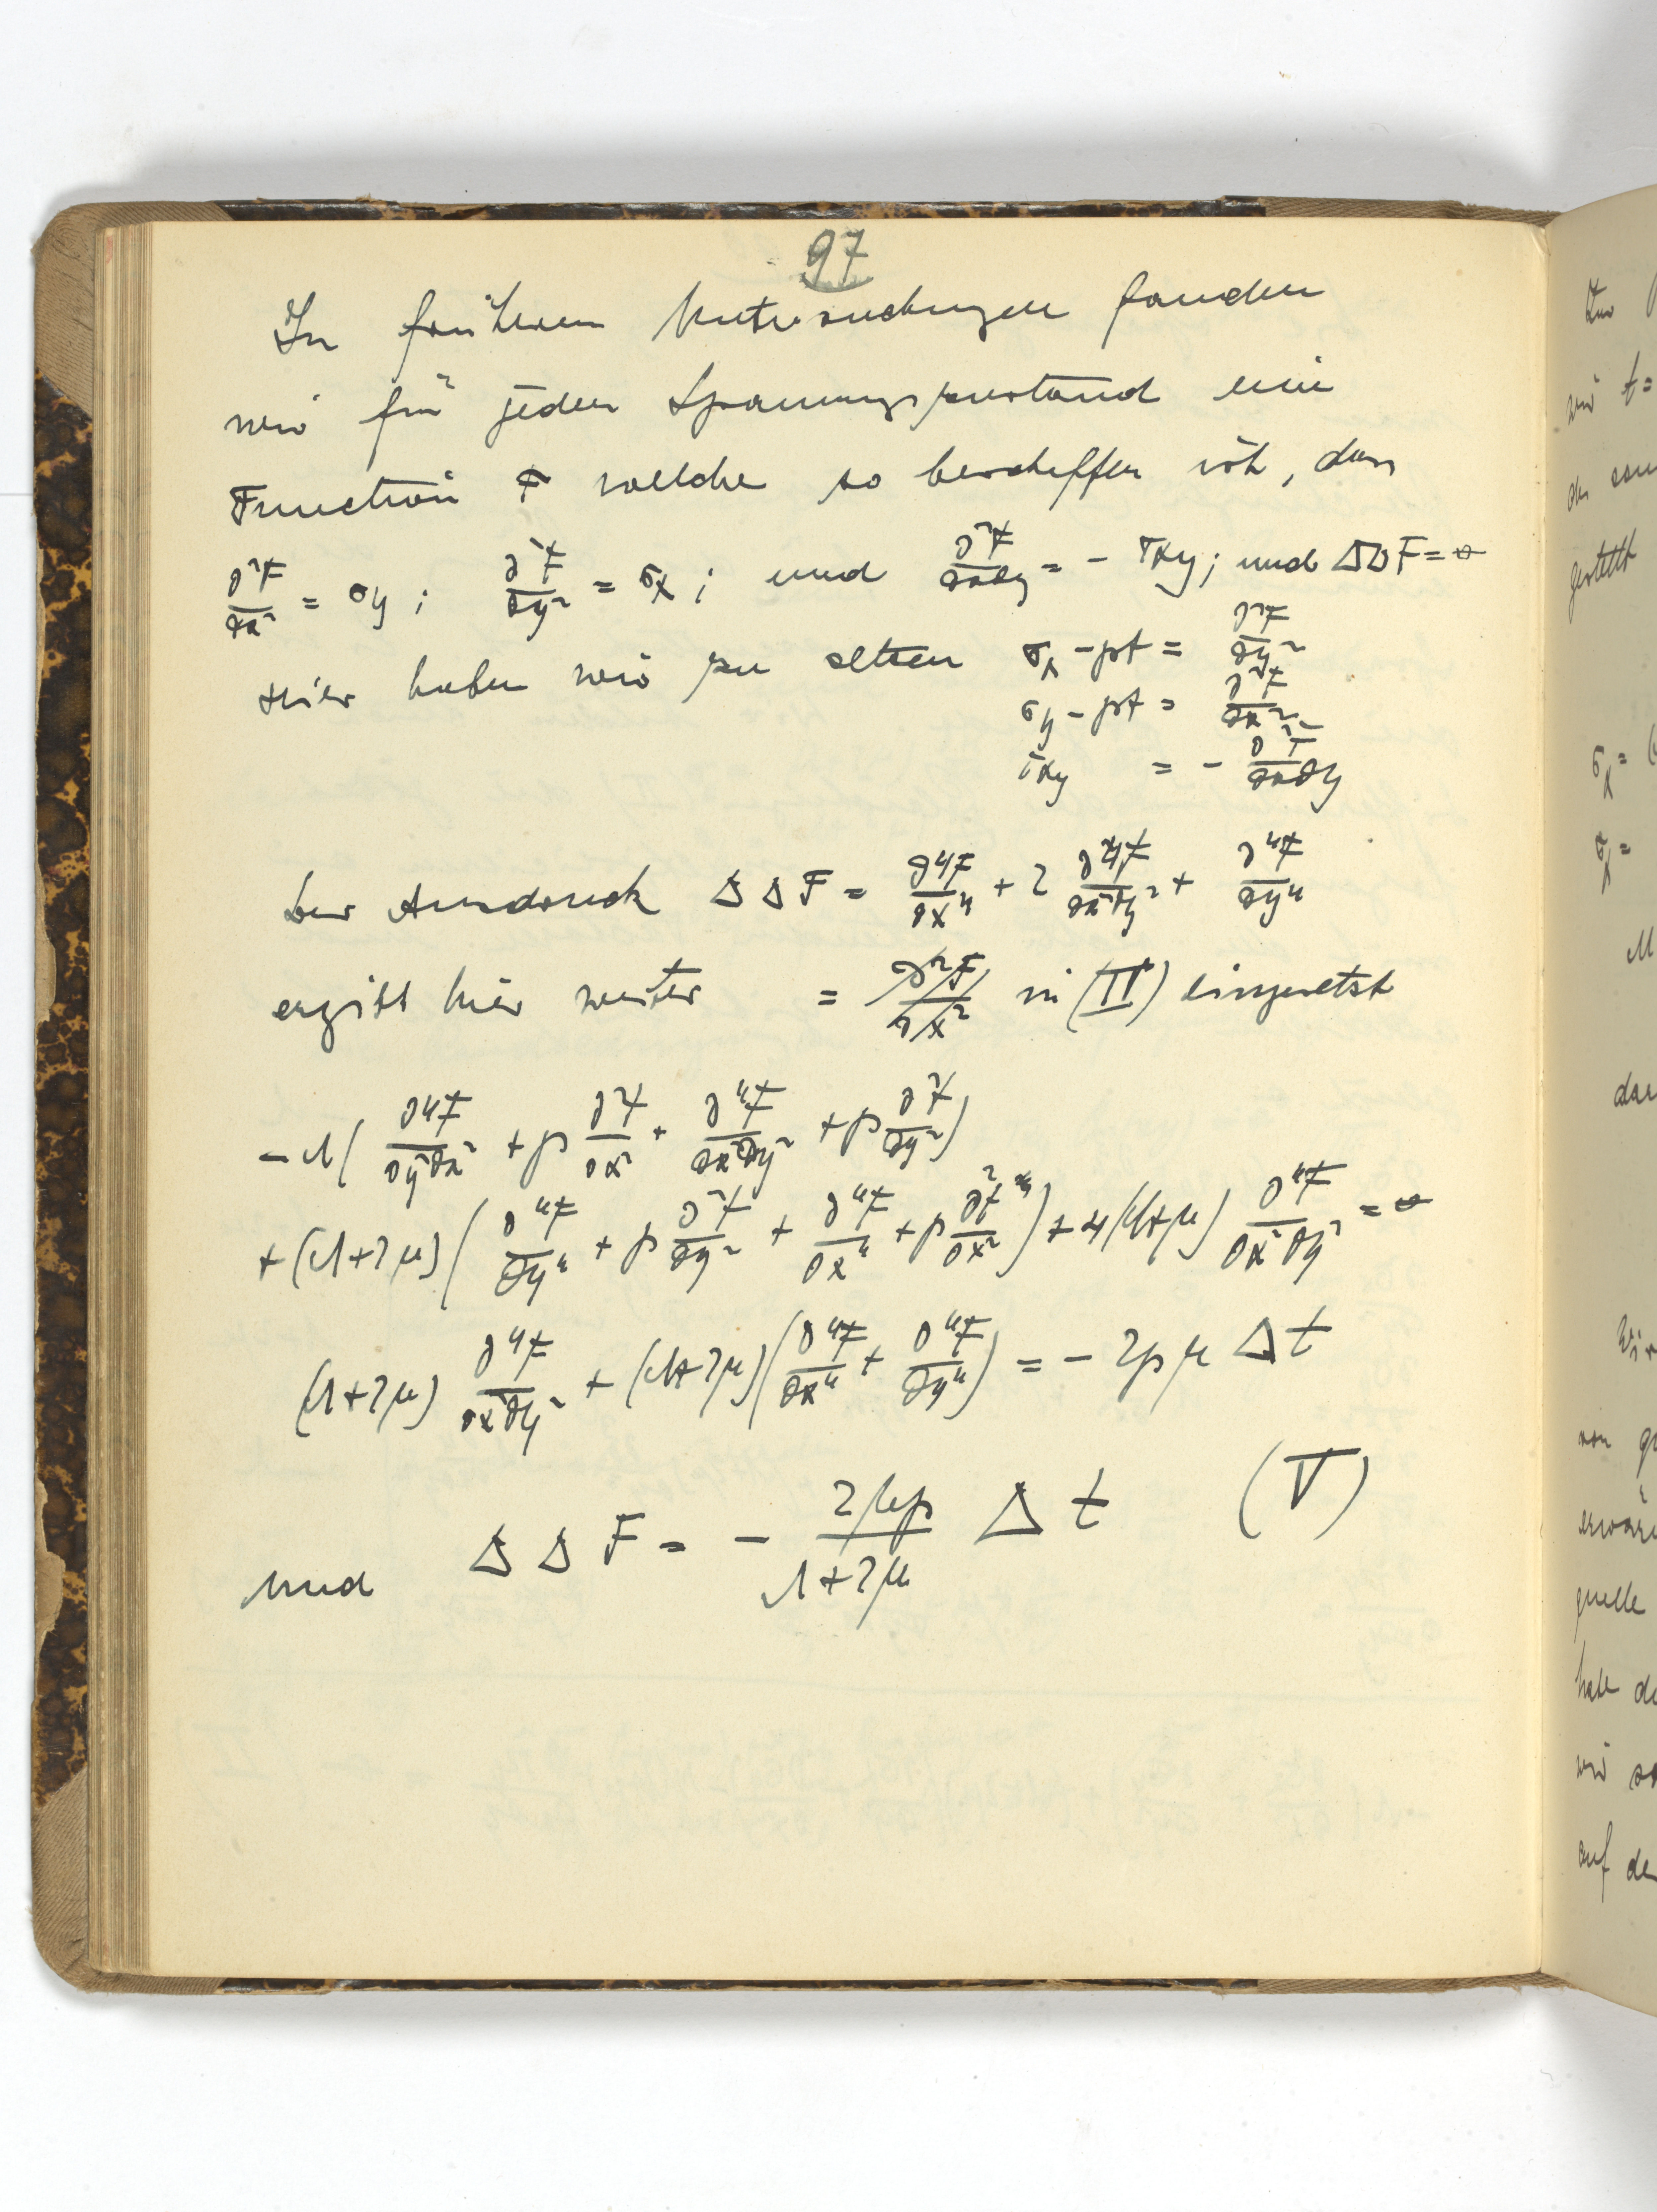 97
In früheren Untersuchungen fanden
wir für jeden Spannungszustand eine
Function F welche so beschaffen ist, dass
∂²F/∂x² = σy ; ∂²F/∂y² = σx ; und ∂²F/∂x∂y = - τxy ; und ΔΔF = 0
Hier haben wir zu setzen σx - pt = ∂²F/∂y²
σy - pt = ∂²F/∂x²
τxy = - ∂²F/∂x∂y
Der Ausdruck ΔΔF = ∂⁴F/∂x⁴ + 2 ∂⁴F/∂x²∂y² + ∂⁴F/∂y⁴
ergibt hier weiter = ∂²F/∂x² in (II) eingesetzt
- λ( ∂⁴F/∂y²∂x² + p ∂²t/∂x² + ∂⁴F/∂x²∂y² + p ∂²t/∂y² )
+ (λ+2μ) ( ∂⁴F/∂y⁴ + p ∂²t/∂y² + ∂⁴F/∂x⁴ + p ∂²t/∂x² ) + 4(λ+μ) ∂⁴F/∂x²∂y² = 0
(λ+2μ) ∂⁴F/∂x²∂y² + (λ+2μ)( ∂⁴F/∂x⁴ + ∂⁴F/∂y⁴ ) = - 2pμ Δt
und ΔΔF = - 2μp/λ+2μ Δ t (V)
wir t=
gestellt
σx =
σx =
M
quelle
auf de